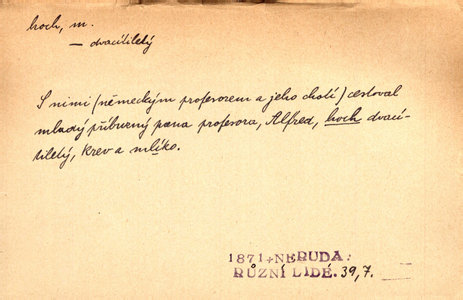 hoch, m.
— dvacítiletý
S nimi (německým profesorem a jeho chotí) cestoval
mladý příbuzný pana profesora, Alfred, hoch dvací-
tiletý, krev a mlíko.
1871, NERUDA:
RŮZNÍ LIDÉ. 39,7.